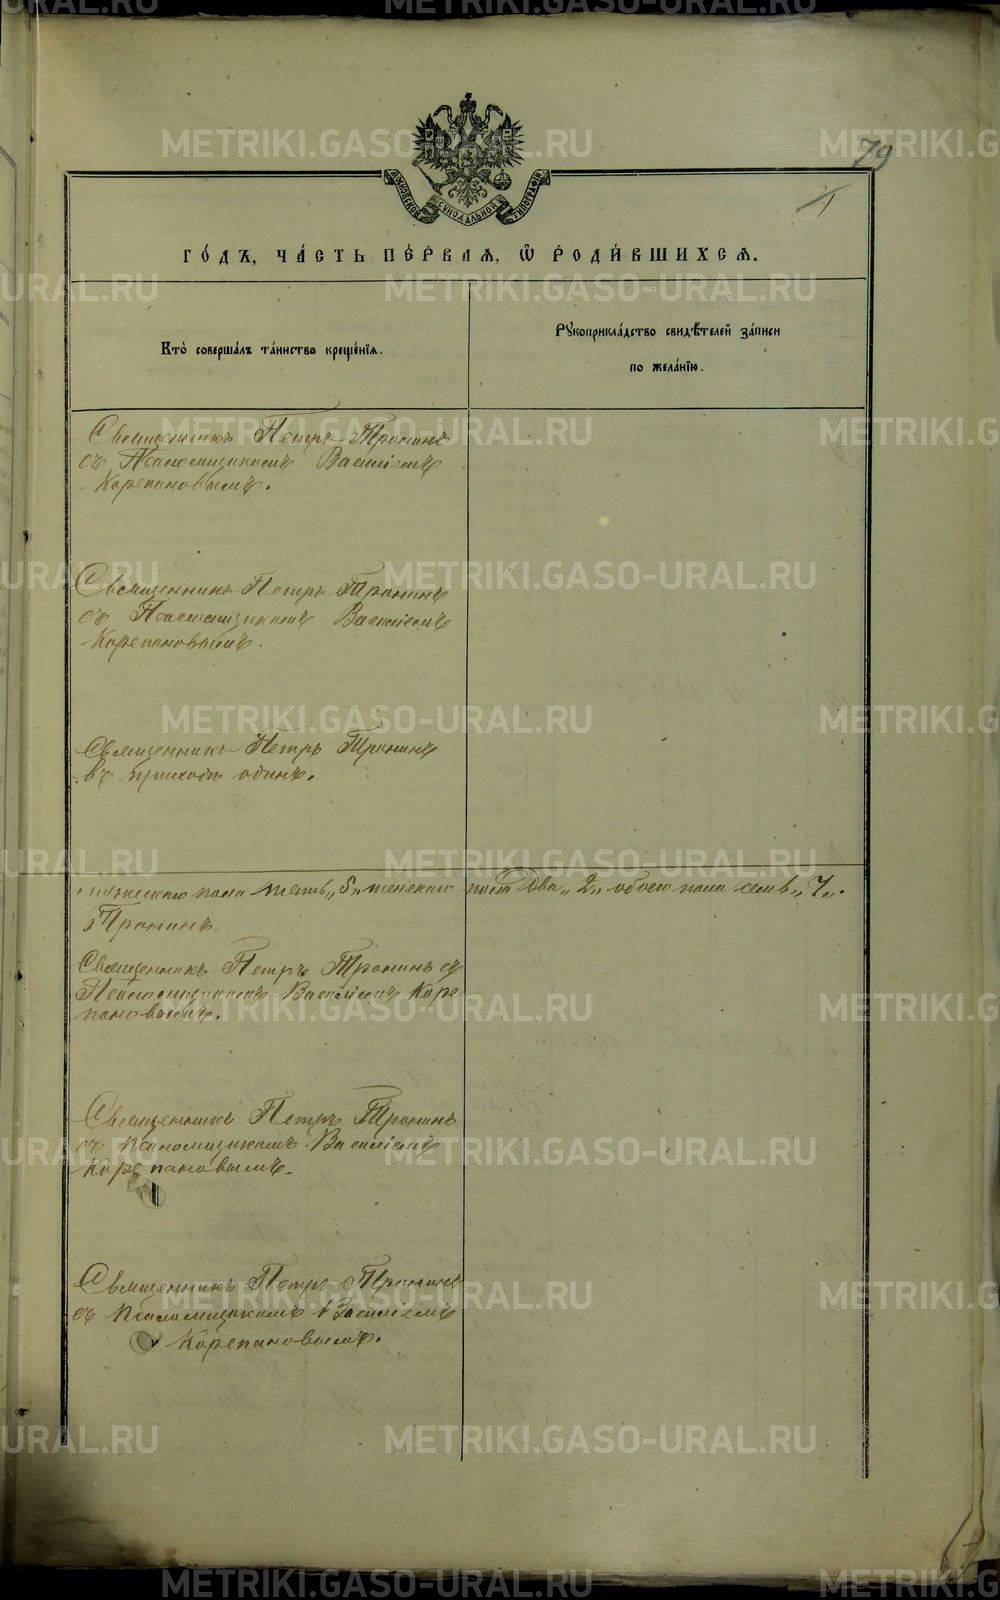 79
1
МОСКОВСКОЙ СѴНОДАЛЬНОЙ ТИПОГРАФІИ
ГО́ДЪ, ЧА́СТЬ ПЕ́РВАѦ, Ѡ҆ РОДИ́ВШИХСѦ.
Кто̀ соверша́лъ та́инство креще́нїѧ.
Рꙋкоприкла́дство свидѣ́телей за́писи
по жела́нїю.
Священникъ Петръ Тронинъ
съ Псаломщикомъ Василіемъ
Корепановымъ.
Священникъ Петръ Тронинъ
съ Псаломщикомъ Василіемъ
Корепановымъ.
Священникъ Петръ Тронинъ
въ приходѣ одинъ.
мужескаго пола пять „5„ женскаго пола два „2„ обоего пола семь „7„.
Тронинъ
Священникъ Петръ Тронинъ съ
Псаломщикомъ Василіемъ Коре
пановымъ.
Священникъ Петръ Тронинъ
съ псаломщикомъ Василіемъ
Корепановымъ.
Священникъ Петръ Тронинъ
съ псаломщикомъ Василіемъ
Корепановымъ.
METRIKI.GASO-URAL.RU